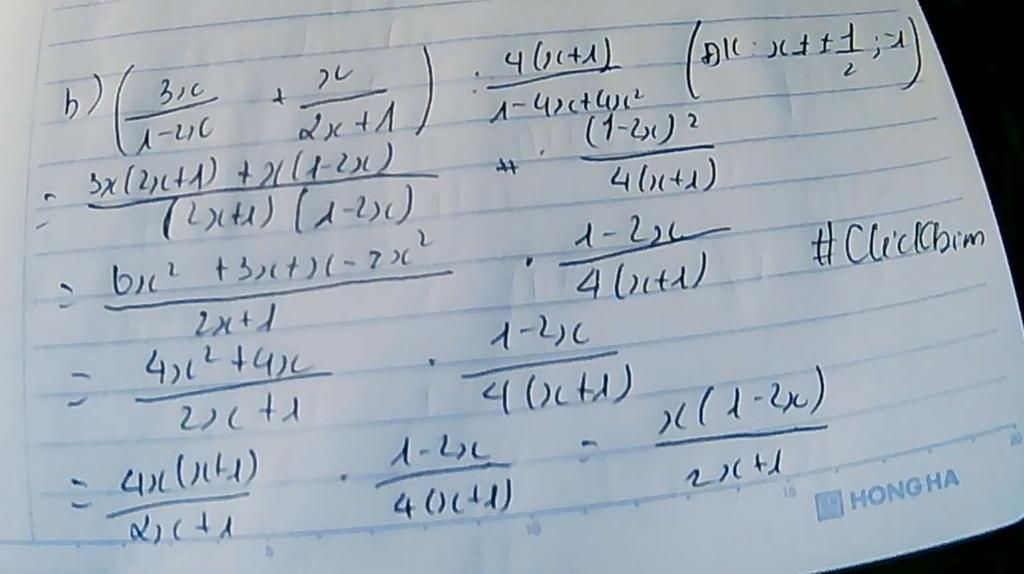 b) (3x/(1-2x) + x/(2x+1)) : 4(x+1)/(1-4x+4x²) (ĐK: x ≠ ±1/2; -1)
= (3x(2x+1) + x(1-2x))/((2x+1)(1-2x)) · (1-2x)²/(4(x+1))
= (6x² + 3x + x - 2x²)/(2x+1) · (1-2x)/(4(x+1))
#ClickBim
= (4x² + 4x)/(2x+1) · (1-2x)/(4(x+1))
= 4x(x+1)/(2x+1) · (1-2x)/(4(x+1)) = x(1-2x)/(2x+1)
HONG HA
5 10 15 20